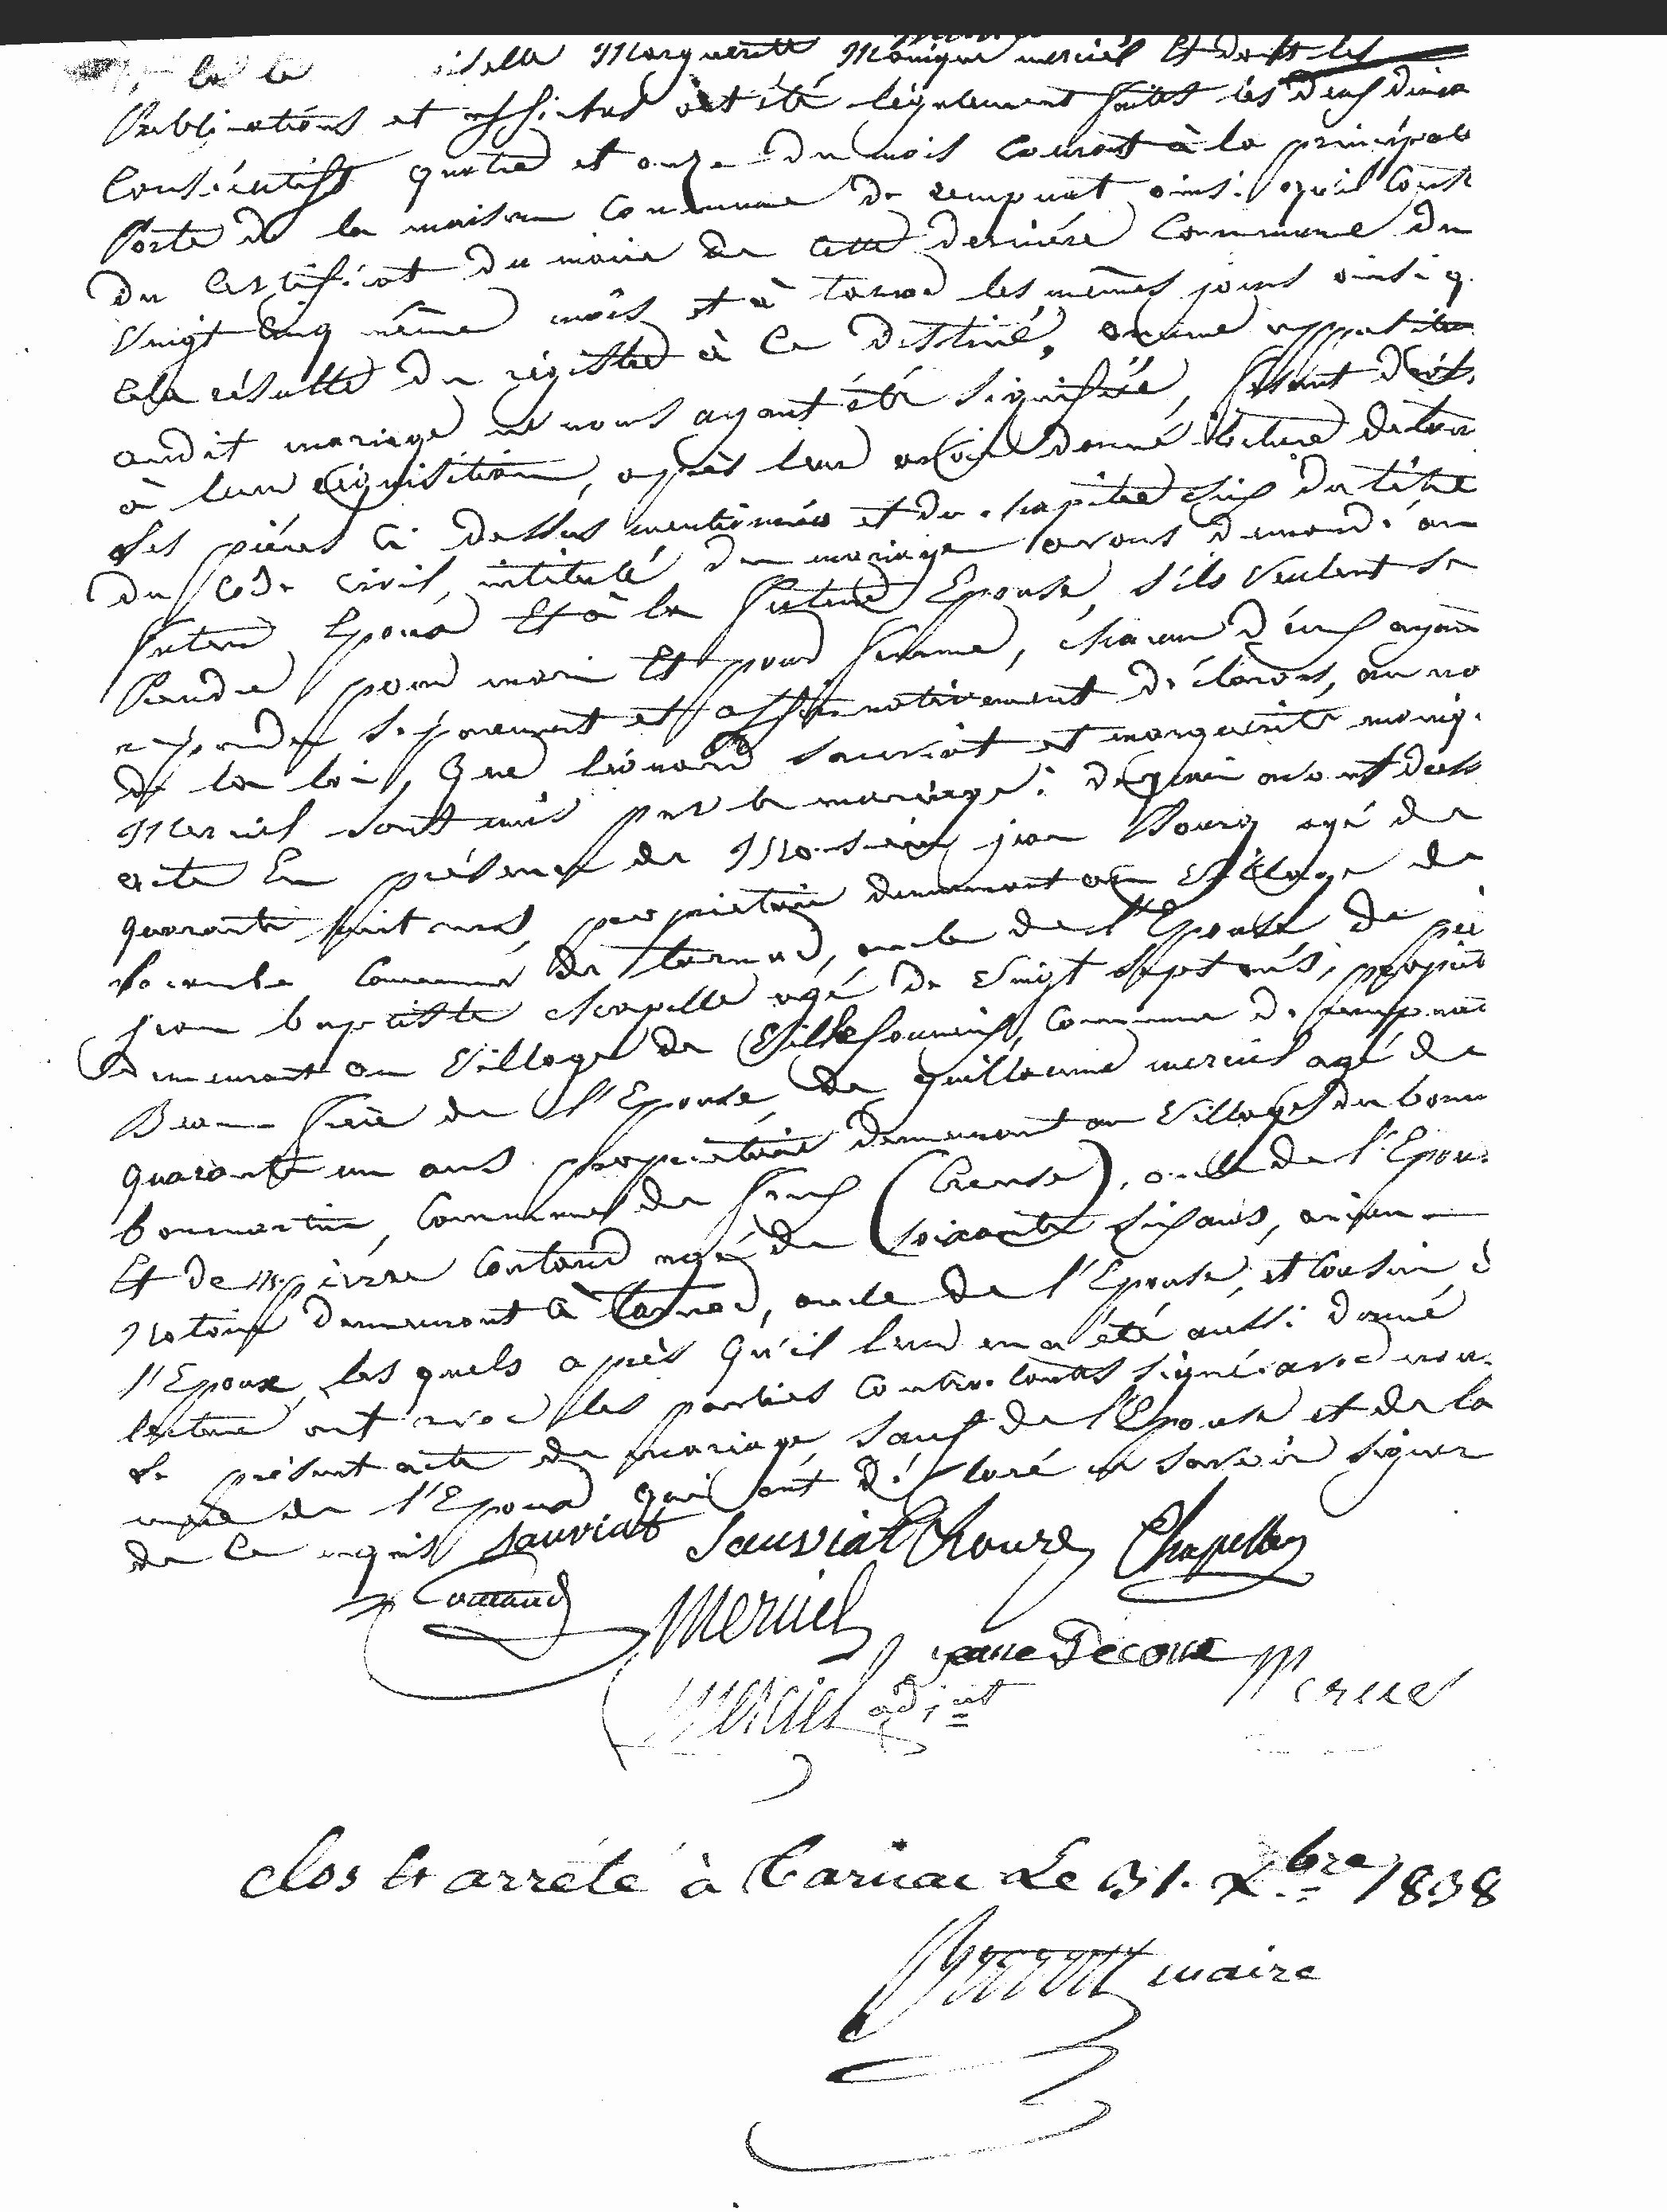 la demoiselle Marguerite Monique meruiel Et dont les
Publications et affiches ont été légalement faites les deux diman
Consécutifs quatre et onze du mois Courant à la principale
Porte de la maison Commune de rempnat ainsi qu'il Conste
du Certificat du maire de cette dernière Commune du
Vingt Cinq même mois et à tarnac les mêmes jours ainsi q.
cela résulte du régistre à Ce destiné, aucune opposition
audit mariage ne nous ayant été signifiée, faisant droit
à leur réquisition, après leur avoir donné lecture de toutes
les pièces Ci dessus mentionnées et du chapitre six du titre
du Code Civil, intitulé du mariage avons demandé au
futur Epoux Et à la future Epouse, s'ils veulent se
Prendre pour mari Et pour femme, chacun d'eux ayant
répondu séparement et affirmativement déclarons, au no
de la loi, Que léonard sauviat et marguerite moniq.
Meruiel sont unis par le mariage: de quoi avons dressé
acte En présence de Monsieur jean Bourg agé de
quarante huit ans, propriétaire demeurant au Village de
Commune de tarnac, oncle de l'Epouse de
jean baptiste chapelle agé de Vingt sept ans, propriét
demeurant au Village de Villefoumeix, Commune de rempnat
Beau frère de l'Epouse, de guillaume meruiel agé de
quarante un ans propriétaire demeurant au Village du bour
Commune de feniers (Creuse), oncle de l'Epouse
Et de Mr. pierre Contaud agé de soixante six ans, ancien
Notaire demeurant à tarnac, oncle de l'Epouse, et Cousin à
l'Epoux, les quels après Qu'il leur en a été aussi donné
lecture ont avec les parties Contractantes signé avec nous
le présent acte de mariage, sauf de l'Epouse et de la
mère de l'Epoux qui ont déclaré ne savoir signer
de Ce requis sauviat Sauviat Chapelle
Contaud Meruiel
Meruiel adjint
clos Et arrêté à Tarnac Le 31. Xbre 1838
maire